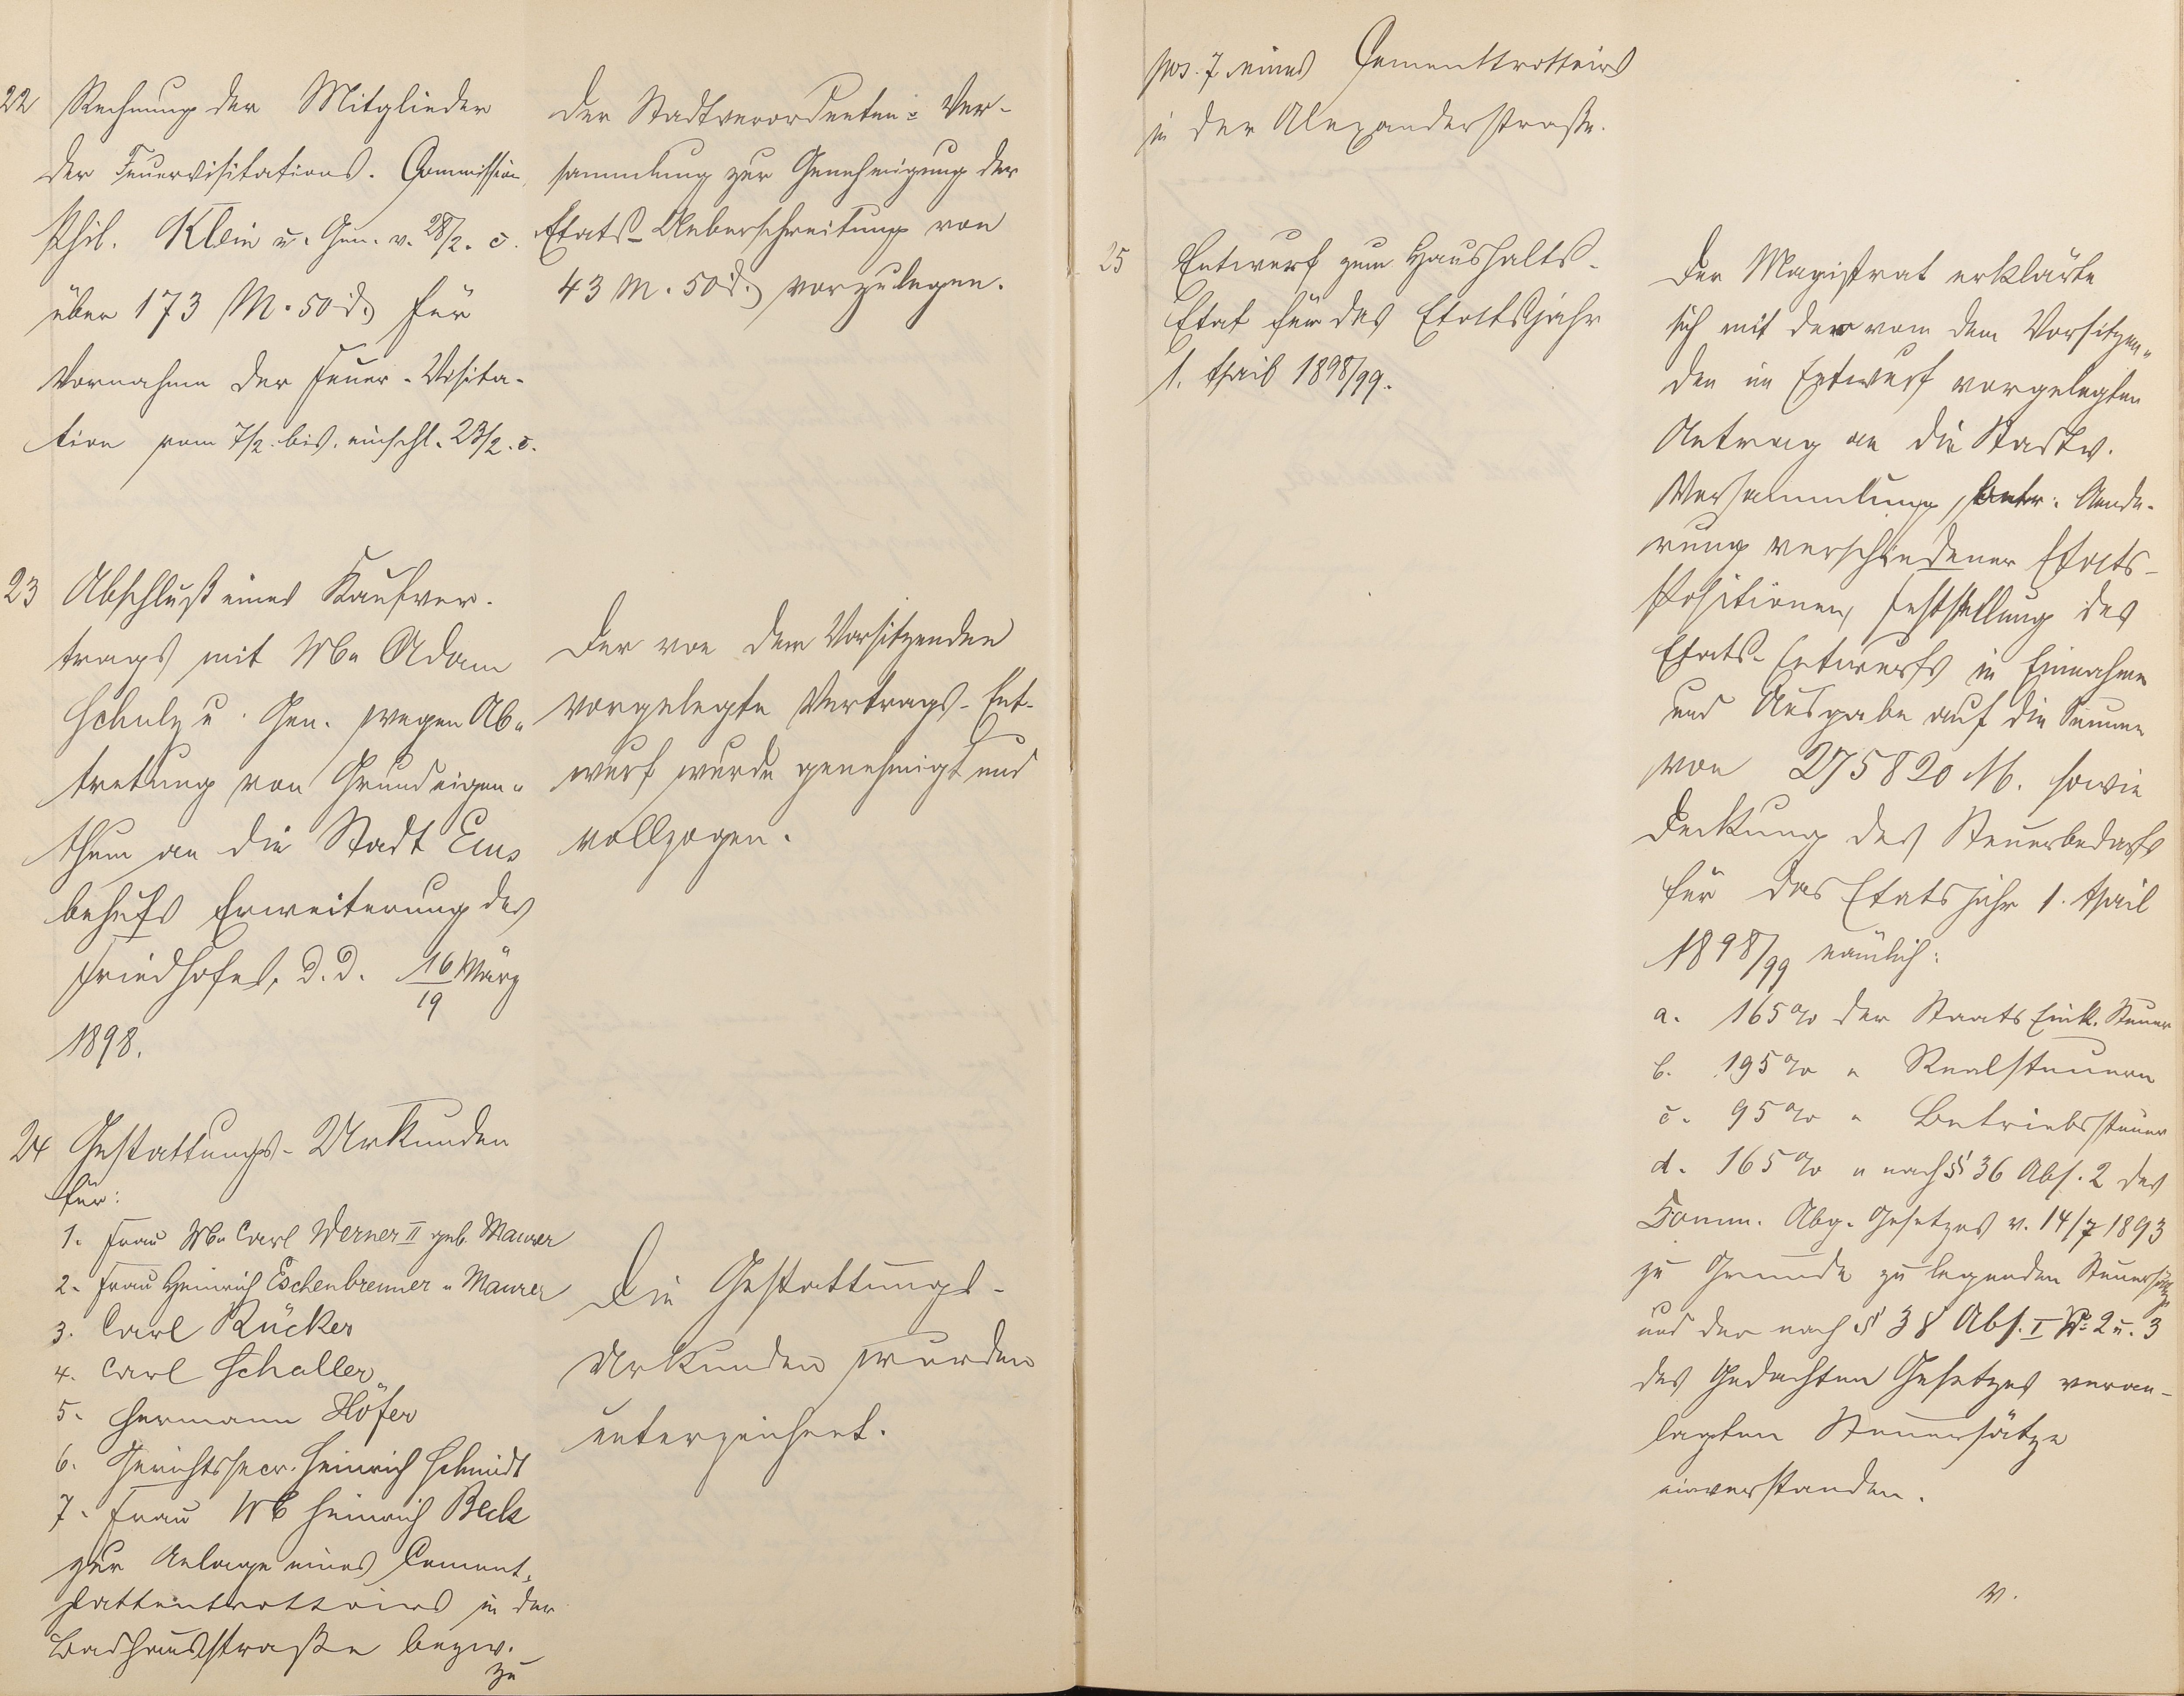 22 Rechnung der Mitglieder
der Feuervisitations-Commission,
Phil. Klein u. Gen. v. 28/2. c.
über 173 M. 50 d. für
Vornahme der Feuer-Visita-
tion vom 7/2. bis. einschl. 23/2. c.
Der Stadtverordneten-Ver-
sammlung zur Genehmigung der
Etats-Ueberschreitung von
43 M. 50 d. vorzulegen.
23 Abschluß eines Kaufver-
trags mit Ww Adam
Schulz u. Gen. wegen Ab-
tretung von Grundeigen-
thum an die Stadt Ems
behufs Erweiterung des
Friedhofes, d.d. 16/19 März
1898.
Der von dem Vorsitzenden
vorgelegte Vertrags-Ent-
wurf wurde genehmigt und
vollzogen.
24 Gestattungs-Urkunden
für:
1. Frau Ww Carl Werner II geb. Maurer
2. Frau Heinrich Eschenbrenner " Maurer
3. Carl Rücker
4. Carl Schaller
5. Hermann Höfer
6. Gerichtssecr. Heinrich Schmidt
7. Frau Ww Heinrich Beck
zur Anlage eines Cement-
plattentrottoirs in der
Badhausstraße bezw.
zu
Die Gestattungs-
Urkunden wurden
unterzeichnet.
pos. 7 eines Cementtrottoirs
in der Alexanderstraße.
25 Entwurf zum Haushalts-
Etat für das Etatsjahr
1. April 1898/99.
Der Magistrat erklärte
sich mit der vom dem Vorsitzen-
den im Entwurf vorgelegten
Antrag an die Stadtv.
Versammlung, betr. Aende-
rung verschiedener Etats-
Positionen, Feststellung des
Etats-Entwurfs in Einnahme
und Ausgabe auf die Summe
von 275820 M. sowie
Deckung des Steuerbedarfs
für das Etatsjahr 1. April
1898/99 nämlich:
a. 165% der Staats Eink. Steuer
b. 195% " Realsteuern
c. 95% " Betriebssteuer
d. 165% " nach § 36 Abs. 2 des
Komm. Abg. Gesetzes v. 14/7 1893
zu Grunde zu legenden Steuersätze
und der nach § 38 Abs. I No 2 u. 3
des gedachten Gesetzes veran-
lagten Steuersätze
einverstanden.